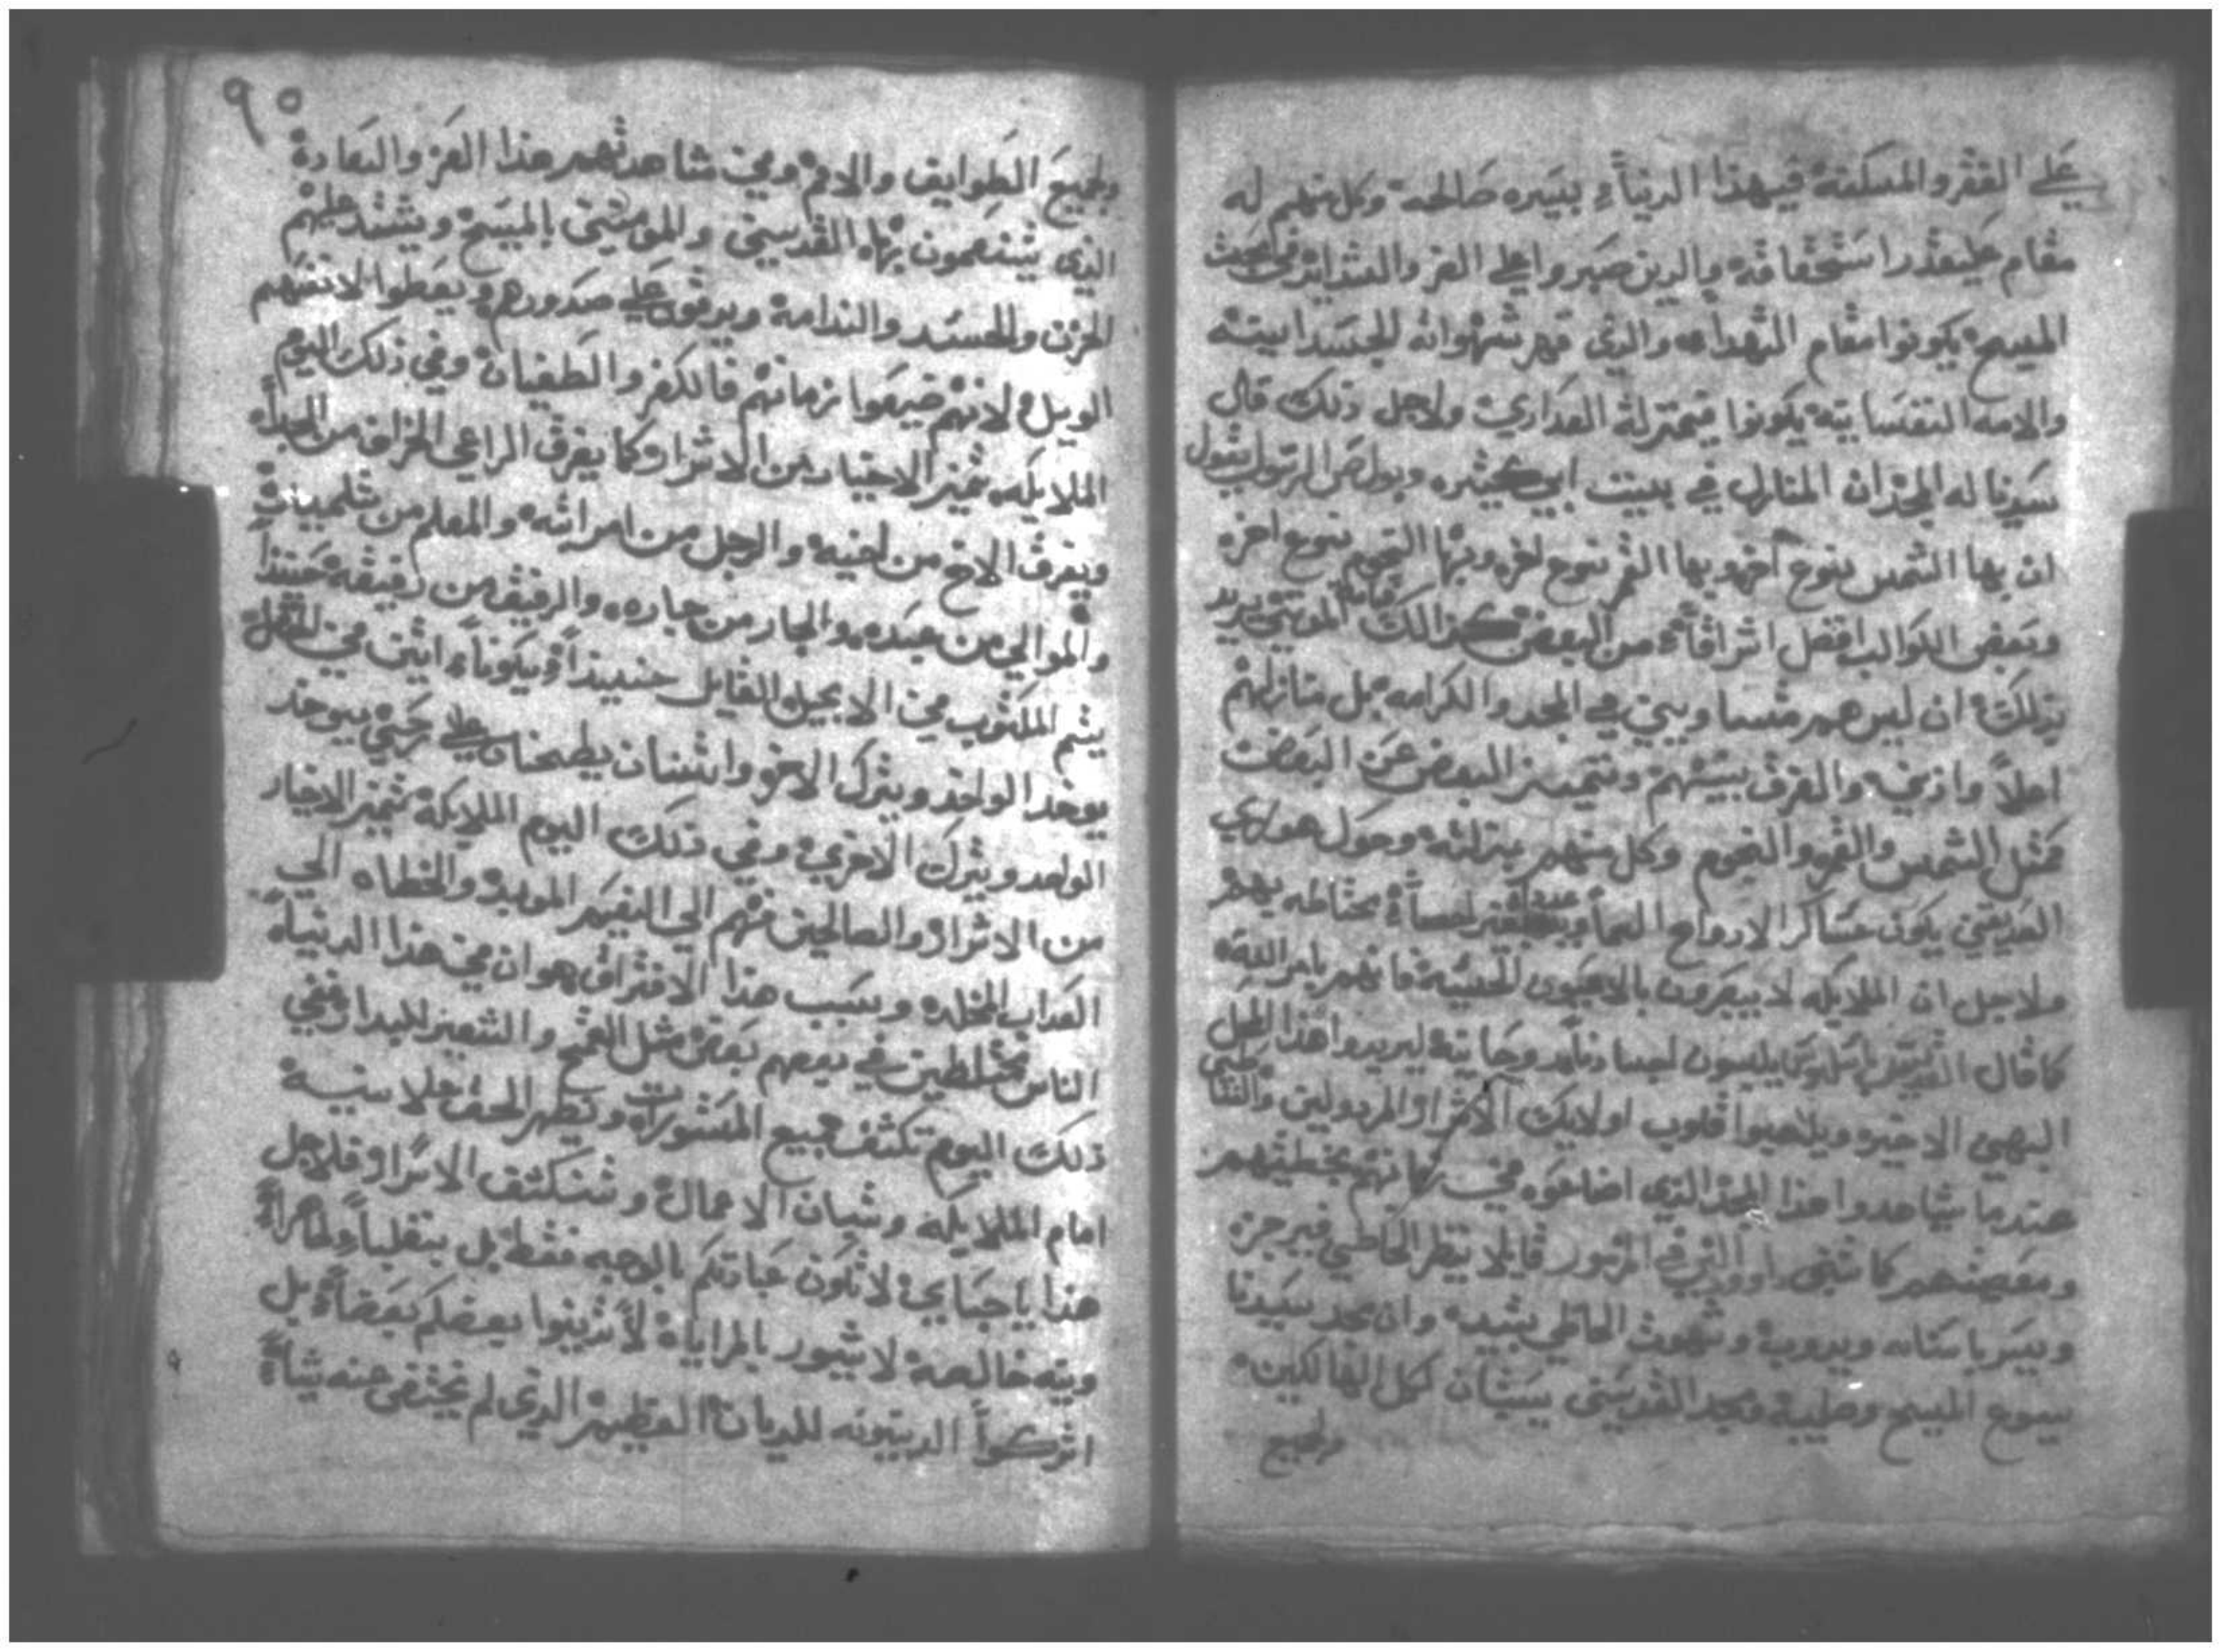 علي الفقر والمسكنة فيهذا الدنياء بسيره صالحة وكل منهم له
مقام عليقدر استحقاقه والدين صبروا علي الضر والشدايد في محبت
المسيح يكونوا مقام الشهداء والذي قهر شهواته الجسدانيته
والامه النفسانيته يكونوا بمنزلة العداري ولاجل ذلك قال
سيدنا له المجد ان المنازل في بيت ابي كثيره وبولص الرسول يقول
ان بها الشمس بنوع اخر وبها القمر بنوع اخر وبها النجوم بنوع اخر
وبعض الكواكب افضل اشراقاً من البعض كذالك المومنين يريد
بذلك ان ليس هم متساويين في المجد والكرامه بل منازلهم
اعلاً وادني والفرق بينهم وتتميز البعض عن البعض
مثل الشمس والقمر والنجوم وكل منهم بمنزلته وحول هولاي
الصديقين يكون عساكر الارواح السماويه
ولاجل ان الملايكه لا يبصرون بالاعيون الحسية فانهم بامر الله
كما قال القديس يلبسون اجساد روحانية ليريدوا هذا
البهي الاخيره ويلاهبوا قلوب اولايك الاشرار المردولين
عندما يشاهدوا هذا المجد الذي اضاعوه من بخطيتهم
ومعصيتهم كما تنبي داوود النبي في المزبور قايلا ينظر الخاطي فيرجز
ويصر باسنانه ويدوب وشهوت الخاطي تبيد وان مجد سيدنا
يسوع المسيح وصليبه ومجد القديسين يستبان لكل الهالكين
ولجميع
٩٥
ولجميع الطوايف والامم وفي مشاهدتهم هذا العز والسعادة
الذي يتنعمون بها القديسين والمومنين بالمسيح ويشتد عليهم
الحزن والحسد والندامة ويدقون علي صدورهم ويعطوا لانفسهم
الويل لانهم ضيعوا زمانهم في الكفر والطغيان وفي ذلك اليوم
الملايكه تميز الاخيار من الاشرار كما يفرق الراعي الخراف من الجداء
ويفرق الاخ من اخيه والرجل من امراته والمعلم من تلميده
والموالي من عبيده والجار من جاره والرفيق من رفيقه حينئذاً
يتم المكتوب في الانجيل القايل حينيذاً يكونا اتنين في الحقل
يوخد الواحد ويترك الاخر واتنتان يطحنان علي رحي يوخد
الواحد ويترك الاخري وفي ذلك اليوم الملايكة تميز الاخيار
من الاشرار والصالحين منهم الي النعيم الموبد والخطاه الي
العداب المخلد وسبب هذا الافتراق هو ان في هذا الدنياء
الناس مختلطين في بعضهم بعض مثل القمح والشعير ففي
ذلك اليوم تكشف جميع المستورات وتظهر الحق علانية
امام الملايكه وتبان الاعمال وتنكشف الاسرار فلاجل
هذا يا احباي لا تكون عبادتكم بالوجه فقط بل بقلباً طاهراً
ونيه خالصة لا تدينوا بعضكم بعضاً بل
اتركوا الدينونه للديان العظيم الذي لم يختفي عنه شياءً